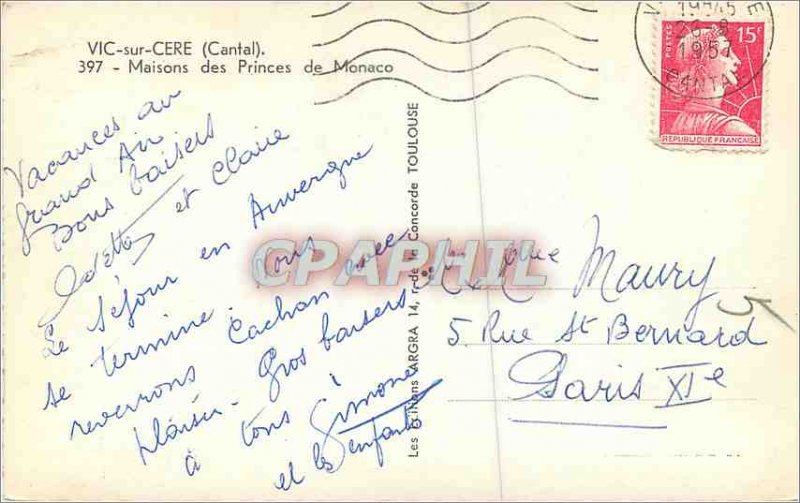 VIC-sur-CERE (Cantal).
397 - Maisons des Princes de Monaco
Vacances au
grand Air
Bons baisers
Odette et Claire
Le Séjour en Auvergne
se termine. Nous
reverrons Cachan avec
plaisir. Gros baisers
à tous Simone
et les enfants
Les Editions ARGRA 14, r. de la Concorde TOULOUSE
CPAPHIL
Maury
5 Rue St Bernard
Paris XIe
1957
CANTAL
POSTES
15F
REPUBLIQUE FRANÇAISE